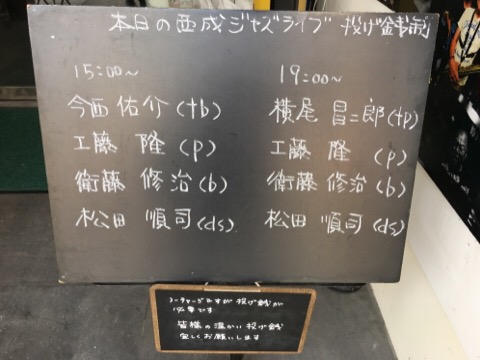 本日の西成ジャズライブ 投げ銭制
15:00~
今西佑介(tb)
工藤 隆(p)
衛藤 修治(b)
松田 順司(ds)
19:00~
横尾 昌二郎(tp)
工藤 隆 (p)
衛藤 修治(b)
松田 順司(ds)
ノーチャージですが投げ銭が
必要です
皆様の温かい投げ銭
宜しくお願いします